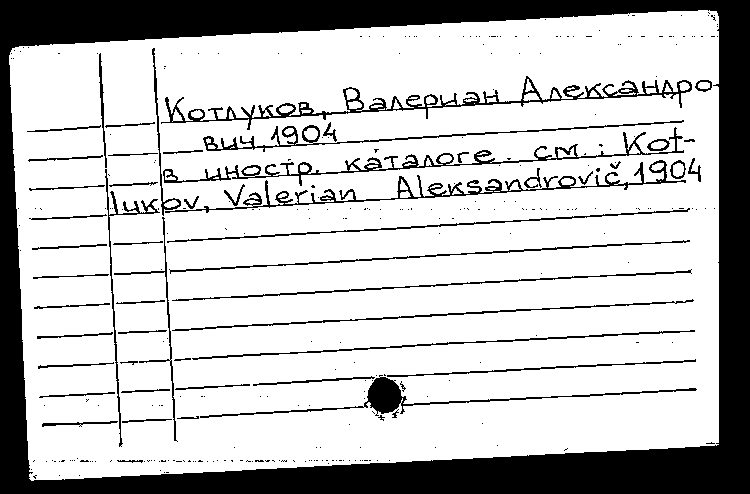 Котлуков, Валериан Александро-
вич, 1904
в иностр. каталоге см.: Kot-
lukov, Valerian Aleksandrovič, 1904